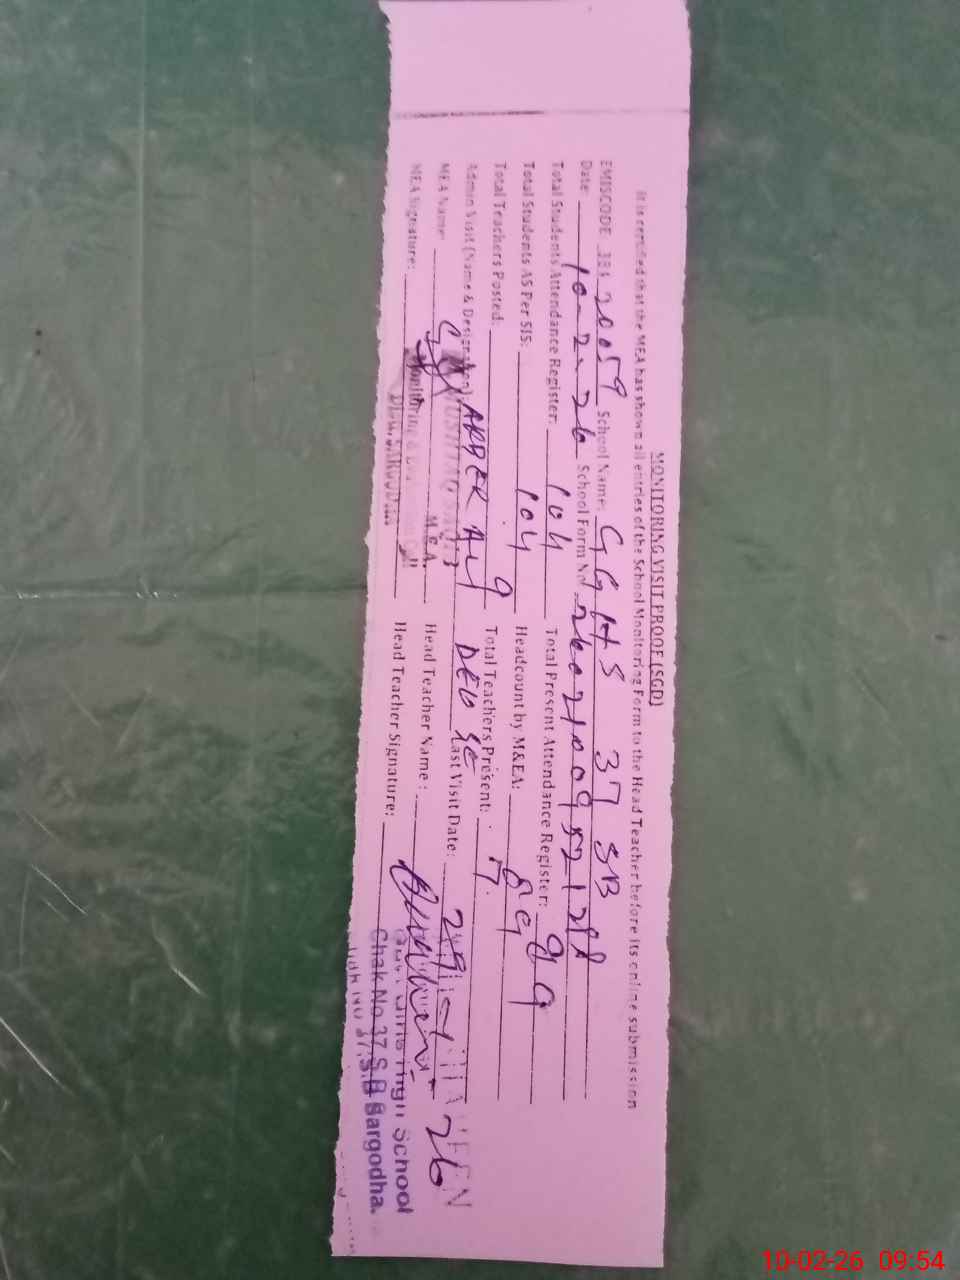 MONITORING VISIT PROOF (SGD)
It is certified that the MEA has shown all entries of the School Monitoring Form to the Head Teacher before its online submission
EMISCODE 38420059 School Name: GGHS 37 SB
Date: 10-2-26 School Form No
Total Students Attendance Register: 104 Total Present Attendance Register: 89
Total Students AS Per SIS: 104 Headcount by M&EA: 89
Total Teachers Posted: 9 Total Teachers Present: 7
Admin Visit (Name & Designation) AKBER ALI DEO SE Last Visit Date: 29-1-26
MEA Name: M.E.A. Head Teacher Name:
MEA Signature: Monitoring & Cell Head Teacher Signature:
SARGODHA
Girls High School
Chak No 37 S.B Sargodha.
10-02-26 09:54